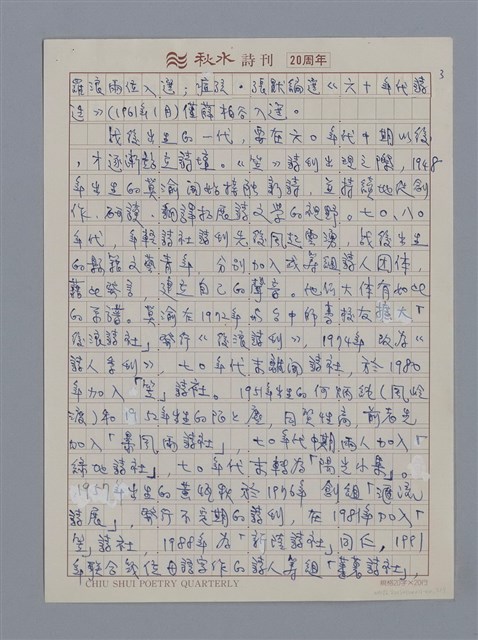 秋水詩刊 20周年
3
羅浪兩位入選；瘂弦、張默編選《六十年代詩
選》(1961年1月)僅薛柏谷入選。
戰後出生的一代，要在六〇年代中期以後
，才逐漸現身詩壇。《笠》詩刊出現之際，1948
年出生的莫渝開始接觸新詩，並持續地從創
作、研讀、翻譯拓展詩文學的視野。七〇、八〇
年代，年輕詩社詩刊先後風起雲湧，戰後出生
的縣籍文藝青年，分別加入或籌組詩人团体，
藉此發言，建立自己的聲音。他們大体有如此
的系譜。莫渝在1972年與台中師專校友擴大「
後浪詩社」，發行《後浪詩刊》，1974年改為《
詩人季刊》，七〇年代末離開詩社，於1980
年加入「笠」詩社。1951年生的何炳純(風岭
渡)和1952年生的陌上塵，同賀性高，前者先
加入「暴風雨詩社」，七〇年代中期兩人加入「
綠地詩社」，七〇年代末轉為「陽光小集」。
1954年出生的黃恆秋於1976年創組「滙流
詩展」，發行不定期的詩刊，在1981年加入「
笠」詩社，1988年為「新陸詩社」同仁，1991
年聯合幾位使用母語字作的詩人籌組「蕃薯詩社」，
CHIU SHUI POETRY QUARTERLY